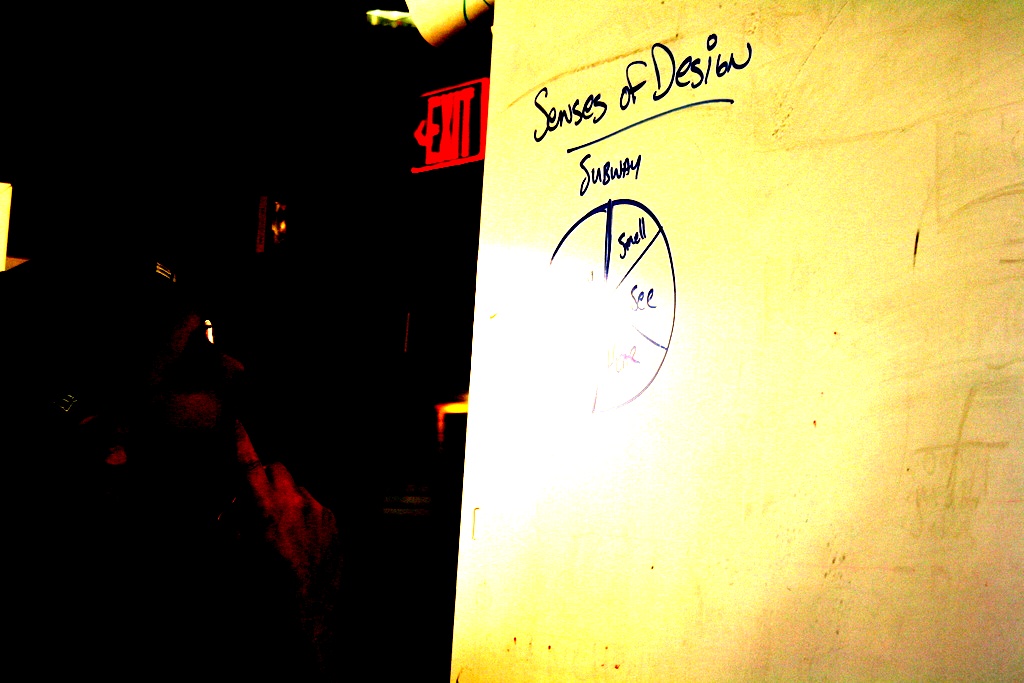 EXIT
Senses of Design
SUBWAY
Smell
See